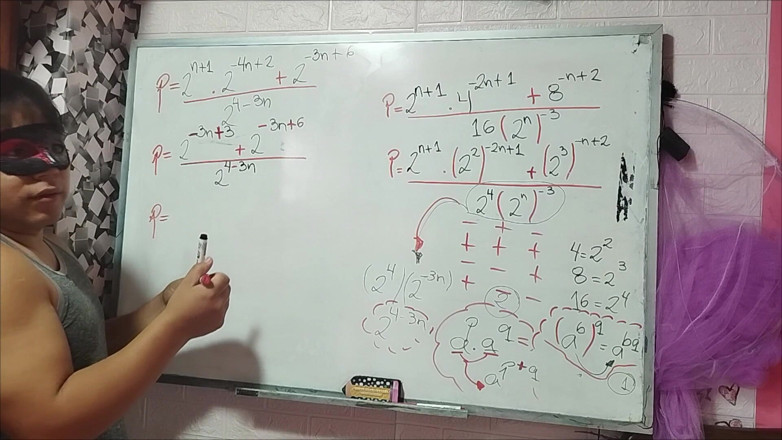 P = 2^{n+1} . 2^{-4n+2} + 2^{-3n+6}
2^{4-3n}
P = 2^{-3n+3} + 2^{-3n+6}
2^{4-3n}
P =
P = 2^{n+1} . 4^{-2n+1} + 8^{-n+2}
16 (2^n)^{-3}
P = 2^{n+1} . (2^2)^{-2n+1} + (2^3)^{-n+2}
2^4 (2^n)^{-3}
(2^4)(2^{-3n})
2^{4-3n}
- + -
+ + +
- - +
+ - -
4 = 2^2
8 = 2^3
16 = 2^4
2
a^p . a^q =
a^{p+q}
(a^b)^q = a^{bq}
1